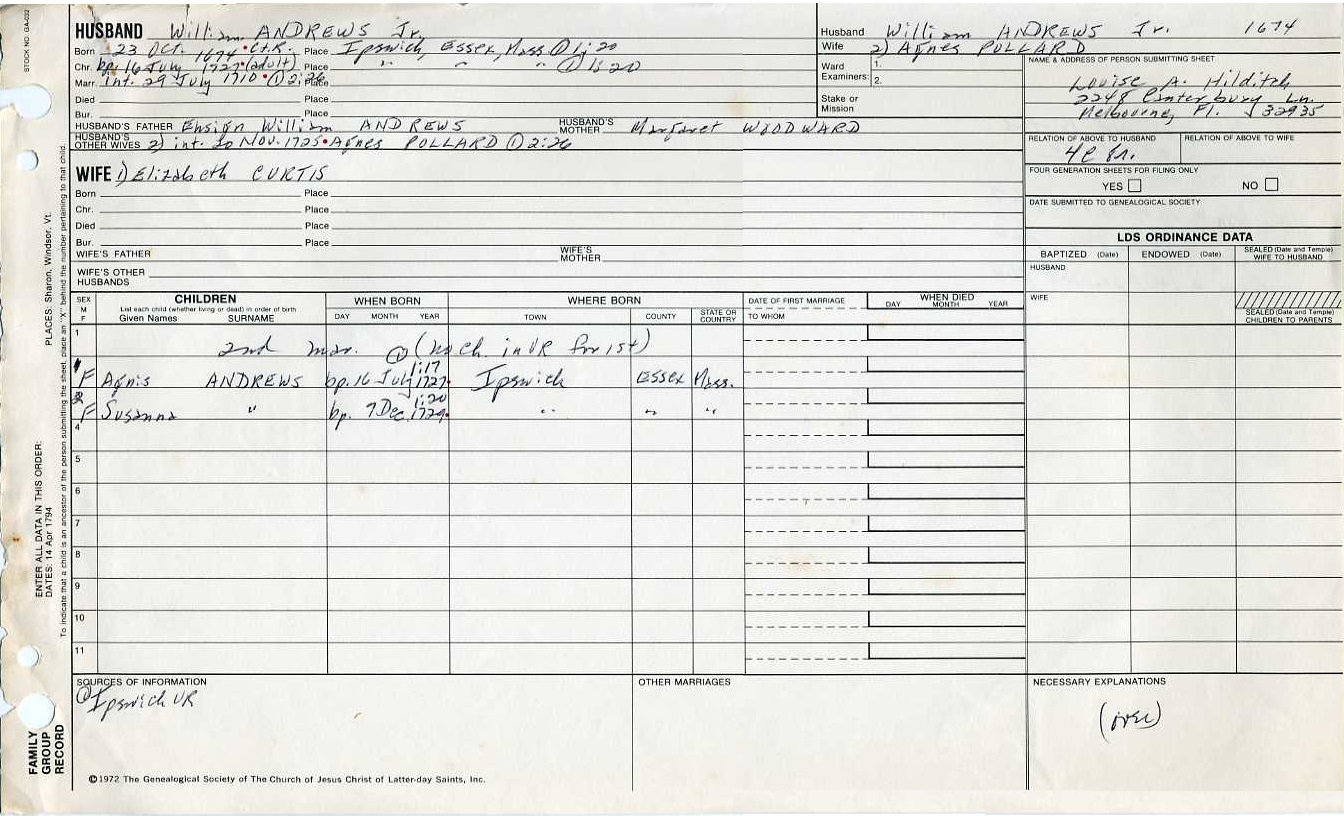 STOCK NO. GA-032
HUSBAND William ANDREWS Jr.
Born 23 Oct. 1674 Ct.R. Place Ipswich, Essex, Mass ① 1:20
Chr. bp. 16 July 1727 (adult) Place " " " ① 1:20
Marr. int. 29 July 1710 ① 2:26 Place
Died Place
Bur. Place
HUSBAND'S FATHER Ensign William ANDREWS HUSBAND'S MOTHER Margaret WOODWARD
HUSBAND'S OTHER WIVES 2) int. 20 Nov. 1725 Agnes POLLARD ① 2:26
WIFE 1) Elizabeth CURTIS
Born Place
Chr. Place
Died Place
Bur. Place
WIFE'S FATHER WIFE'S MOTHER
WIFE'S OTHER HUSBANDS
Husband William ANDREWS Jr. 1674
Wife 2) Agnes POLLARD
Ward Examiners: 1. 2.
Stake or Mission
NAME & ADDRESS OF PERSON SUBMITTING SHEET
Louise A. Hilditch
2248 Canterbury Ln.
Melbourne, Fl. 32935
RELATION OF ABOVE TO HUSBAND RELATION OF ABOVE TO WIFE
FOUR GENERATION SHEETS FOR FILING ONLY
YES NO
DATE SUBMITTED TO GENEALOGICAL SOCIETY
LDS ORDINANCE DATA
BAPTIZED (Date) ENDOWED (Date) SEALED (Date and Temple) WIFE TO HUSBAND
HUSBAND
WIFE
SEALED (Date and Temple) CHILDREN TO PARENTS
SEX M F
CHILDREN
List each child (whether living or dead) in order of birth
Given Names SURNAME
WHEN BORN
DAY MONTH YEAR
WHERE BORN
TOWN COUNTY STATE OR COUNTRY
DATE OF FIRST MARRIAGE
TO WHOM
WHEN DIED
DAY MONTH YEAR
1
2nd mar. ① (no ch. in VR for 1st)
1 F Agnis ANDREWS bp. 16 July 1727 1:17 Ipswich Essex Mass.
2 F Susanna " bp. 7 Dec. 1729 1:20 " " "
4
5
6
7
8
9
10
11
SOURCES OF INFORMATION
① Ipswich VR
OTHER MARRIAGES
NECESSARY EXPLANATIONS
(over)
©1972 The Genealogical Society of The Church of Jesus Christ of Latter-day Saints, Inc.
FAMILY GROUP RECORD
ENTER ALL DATA IN THIS ORDER:
DATES: 14 Apr 1794
PLACES: Sharon, Windsor, Vt.
To indicate that a child is an ancestor of the person submitting the sheet, place an "X" behind the number pertaining to that child.